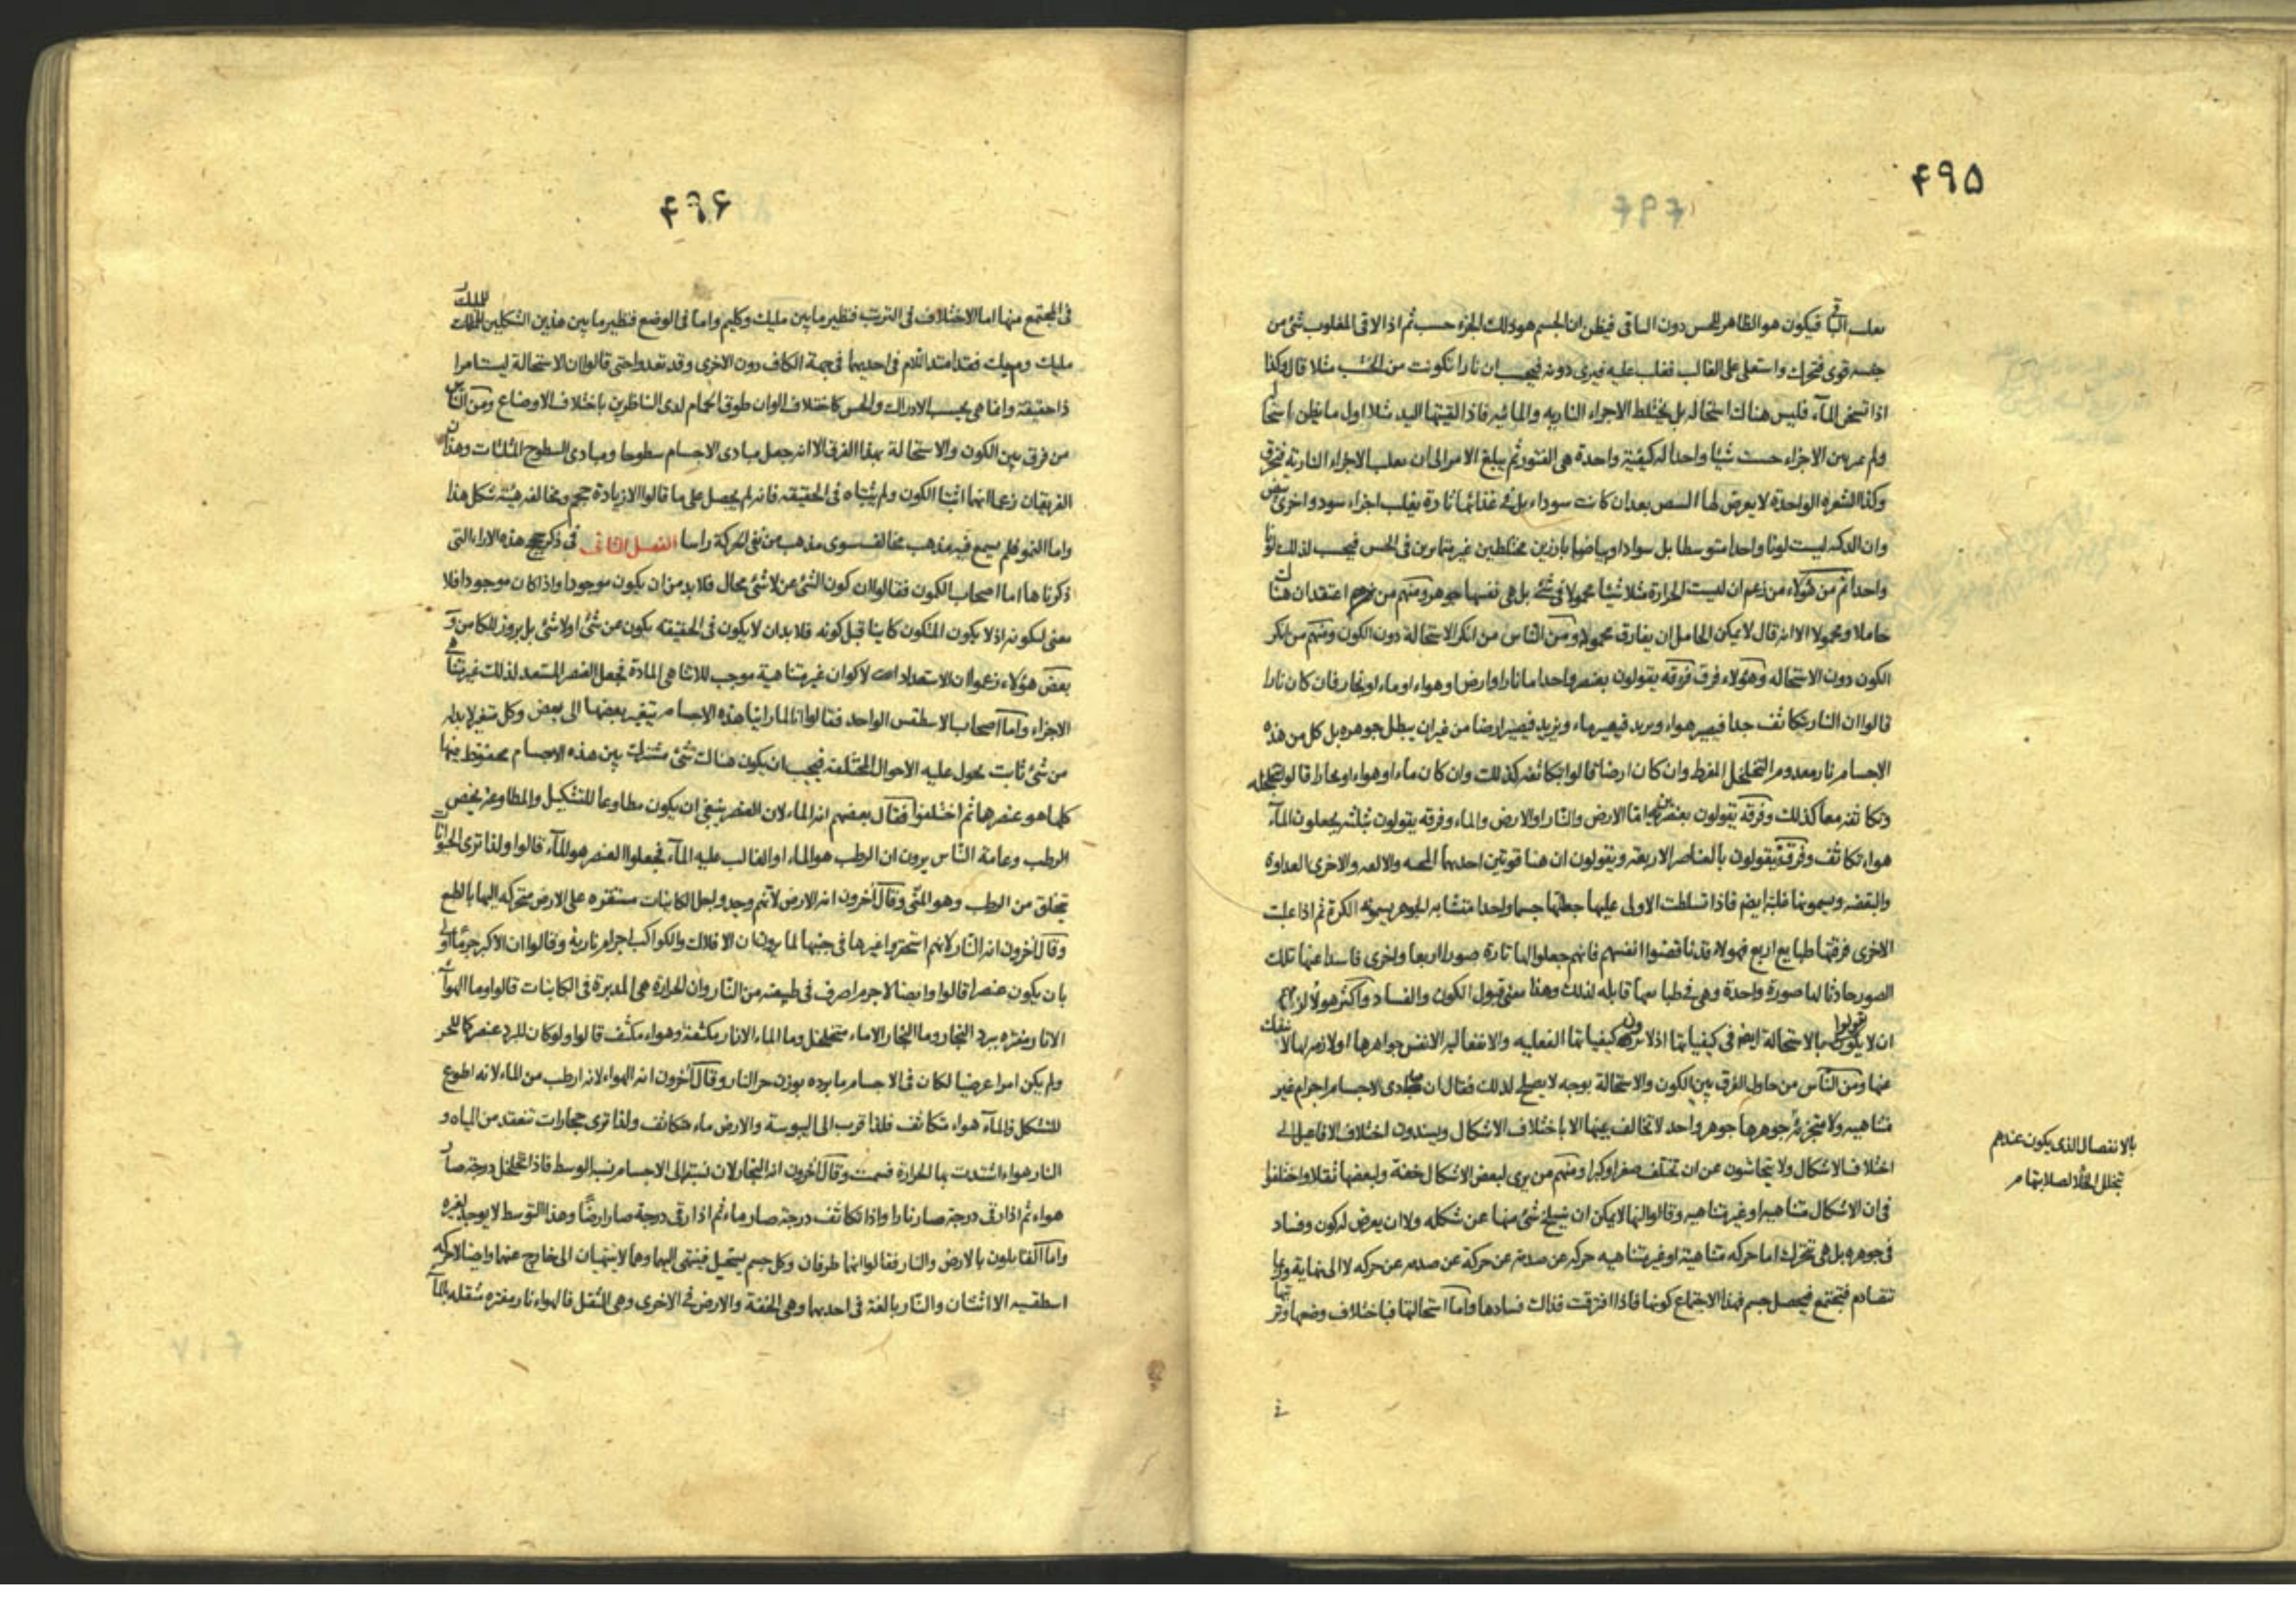 ۴۹۵
فيكون هو الظاهر للحس دون الباقى فيظن ان الجسم هو ذلك الجزء حسب ثم اذا لاقى المغلوب شئ من
جنسه قوى فتحرك واستعلى على الغالب فغلب عليه فيرى دونه فيحسب ان نارا تكونت من الخشب مثلا قالوا وكذا
اذا تسخن المآء فليس هناك استحاله بل يختلط الاجزاء الناريه والمائيه فاذا لقيتها اليد مثلا اول ما يظن استحا
ولم يميز بين الاجزاء حست شيئا واحدا له كيفيّة واحدة هى الفتور ثم يبلغ الامر الى ان الاجزاء الناريّة فتحرق
وكذا الشعره الواحدة لا يعرض لها بعد ان كانت سوداء بل فى غذائها تارة يغلب اجزاء سود واخرى بيض
وان الدكنه ليست لونا واحدا متوسطا بل سوادا وبياضا بارزين مختلطين غير متمايزين فى الحس فيحسب لذلك لونا
واحدا ثم من هؤلاء من زعم ان ليست الحرارة مثلا شيئا محمولا فى شئ بل هى نفسها جوهر ومنهم من اعتقد ان هناك
حاملا ومحمولا الا انه قال لا يمكن الحامل ان يفارق محموله ومن النّاس من انكر الاستحالة دون الكون ومنهم من انكر
الكون دون الاستحاله وهؤلاء فرق فرقه يقولون بعنصر واحد اما نار او ارض او هواء او ماء او بخار فان كان نارا
قالوا ان النار يتكاثف جدا فيصير هواء ويزيد فيصير ماء ويزيد فيصير ارضا من غير ان يبطل جوهره بل كل من هذه
الاجسام نار معدوم التخلخل المفرط وان كان ارضا قالوا بتكاثفه كذلك وان كان ماء او هواء او بخارا قالوا بتخلخله
وتكاثفه معا كذلك وفرقة يقولون بعنصرين اما الارض والنّار او الارض والماء وفرقه يقولون بثلثه يجعلون المآء
هواء تكاثف وفرقة يقولون بالعناصر الاربعة ويقولون ان هنا قوتين احديهما المحبه والالفه والاخرى العداوة
والبغضه ويسمونها غلبة ايضم فاذا تسلطت الاولى عليها جعلتها جسما واحدا متشابه الجوهر يسمونه الكرة ثم اذا غلبت
الاخرى فرقتها طبايع اربع فهولاء قد ناقضوا انفسهم فانهم جعلوا لها تارة صورا اربعا واخرى فاسدا عنها تلك
الصور حادثا لها صورة واحدة وهى فى طباعها قابله لذلك وهذا معنى قبول الكون والفساد واكثر هولاء لزمهم
ان لا يقولوا بالاستحالة ايضم فى كيفياتها اذ لا يرون كيفياتها الفعليه والانفعاليه الا نفس جواهرها او لازمه لها لا تنفك
عنها ومن النّاس من حاول الفرق بين الكون والاستحالة بوجه لا يصلح لذلك فقال ان مبادى الاجسام اجرام غير
متناهيه ولا متجزئة جوهرها جوهر واحد لا تخالف بينها الا باختلاف الاشكال ويسندون اختلاف الافاعيل الى
اختلاف الاشكال ولا يتحاشون عن ان تختلف صغرا وكبرا ومنهم من يرى لبعض الاشكال خفة ولبعضها ثقلا واختلفوا
فى ان الاشكال متناهيه او غير متناهيه وقالوا انها لا يمكن ان ينسلخ شئ منها عن شكله ولا ان يعرض له كون وفساد
فى جوهره بل هى تتحرك اما حركه متناهية او غير متناهيه حركه عن صدمة عن حركة عن صدمه عن حركه لا الى نهاية وربما
تتصادم فتجتمع فيحصل جسم فهذا الاجتماع كونها فاذا افترقت فذلك فسادها واما استحالتها فباختلاف وضعها وترتيبها
بالانفصال الذى يكون عندهم
بتخلل الخلأ لصلابتها م
۴۹۶
فى المجتمع منها اما الاختلاف فى الترتيب فنظير ما بين مليك وكليم واما فى الوضع فنظير ما بين هذين الشكلين
مليك و فقد امتد اللام فى احديهما فى جهة الكاف دون الاخرى وقد تعدوا حتى قالوا ان الاستحالة ليست امرا
ذا حقيقة وانما هى بحسب الادراك والحس كاختلاف الوان طوق الحمام لدى الناظرين باختلاف الاوضاع ومن النّاس
من فرق بين الكون والاستحالة بهذا الفرق الا انه جعل مبادى الاجسام سطوحا ومبادى السطوح المثلثات وهذان
الفريقان زعما انهما اثبتا الكون ولم يثبتاه فى الحقيقه فانه لم يحصل على ما قالوا الا زيادة حجم ومخالفه هيئة شكل هذا
واما النمو فلم يسمع فيه مذهب مخالف سوى مذهب من نفى الحركة راسا الفصل الثانى فى ذكر حجج هذه الاراء التى
ذكرناها اما اصحاب الكمون فقالوا ان كون الشئ عن لا شئ محال فلا بد من ان يكون موجودا واذا كان موجودا فلا
معنى لكونه اذ لا يكون المتكون كاينا قبل كونه فلا بد ان لا يكون فى الحقيقه يكون عن شئ او لا شئ بل بروز للكامن و
بعض هؤلاء زعموا ان الاستعداد لاكوان غير متناهية موجب للاتناهى المادة فجعل العنصر المستعد لذلك غير متناهى
الاجزاء واما اصحاب الاسطقس الواحد فقالوا انا لما راينا هذه الاجسام يتغير بعضها الى بعض وكل متغير لا بد له
من شئ ثابت يحول عليه الاحوال المختلفة فيجب ان يكون هناك شئ مشترك بين هذه الاجسام محفوظ فيها
كلها هو عنصرها ثم اختلفوا فقال بعضهم انه الماء لان العنصر ينبغى ان يكون مطاوعا للتشكيل والمطاوعة يخص
الرطب وعامة النّاس يرون ان الرطب هو الماء او الغالب عليه المآء فجعلوا العنصر هو المآء قالوا ولذا ترى الحيوانات
تتخلق من الرطب وهو المنّى وقال آخرون انه الارض لانهم وجدوا جل الكاينات مستقره على الارض متحركه اليها بالطبع
وقال آخرون انه النّار لانهم استحقروا غيرها فى جنبها لما يرون ان الافلاك والكواكب اجرام نارية وقالوا ان الاكبر جرما اولى
بان يكون عنصرا قالوا وايضا لا جرم اصرف فى طبيعته من النّار وان الحرارة هى المدبرة فى الكاينات قالوا وما الهوآء
الا نار مفتره ببرد البخار وما البخار الا ماء متخلخل وما الماء الا نار مكثفة وهواء مكثّف قالوا ولو كان للبرد عنصر كما للحر
ولم يكن امرا عرضيا لكان فى الاجسام ما برده بوزن حر النار وقال آخرون انه الهواء لانه ارطب من الماء لانه اطوع
للتشكل فالمآء هواء متكاثف فلذا قرب الى اليبوسة والارض ماء متكاثف ولذا ترى حجارات تنعقد من المياه و
النار هواء اشتدت بها الحرارة فسمت وقال آخرون انه البخار لان نسبته الى الاجسام نسبة الوسط فاذا تخلخل درجة صار
هواء ثم اذا رق درجة صار نارا واذا تكاثف درجة صار ماء ثم اذا رق درجة صار ارضا وهذا التوسط لا يوجد لغيره
واما القائلون بالارض والنار فقالوا انهما طرفان وكل جسم يستحيل فينتهى اليهما وهما لا ينتهيان الى خارج عنهما وايضا لا حركه
اسطقسيه الا اثنتان والنّار بالغة فى احديهما وهى الخفة والارض فى الاخرى وهى الثقل فالهواء نار مفتره مثقله بالمآء